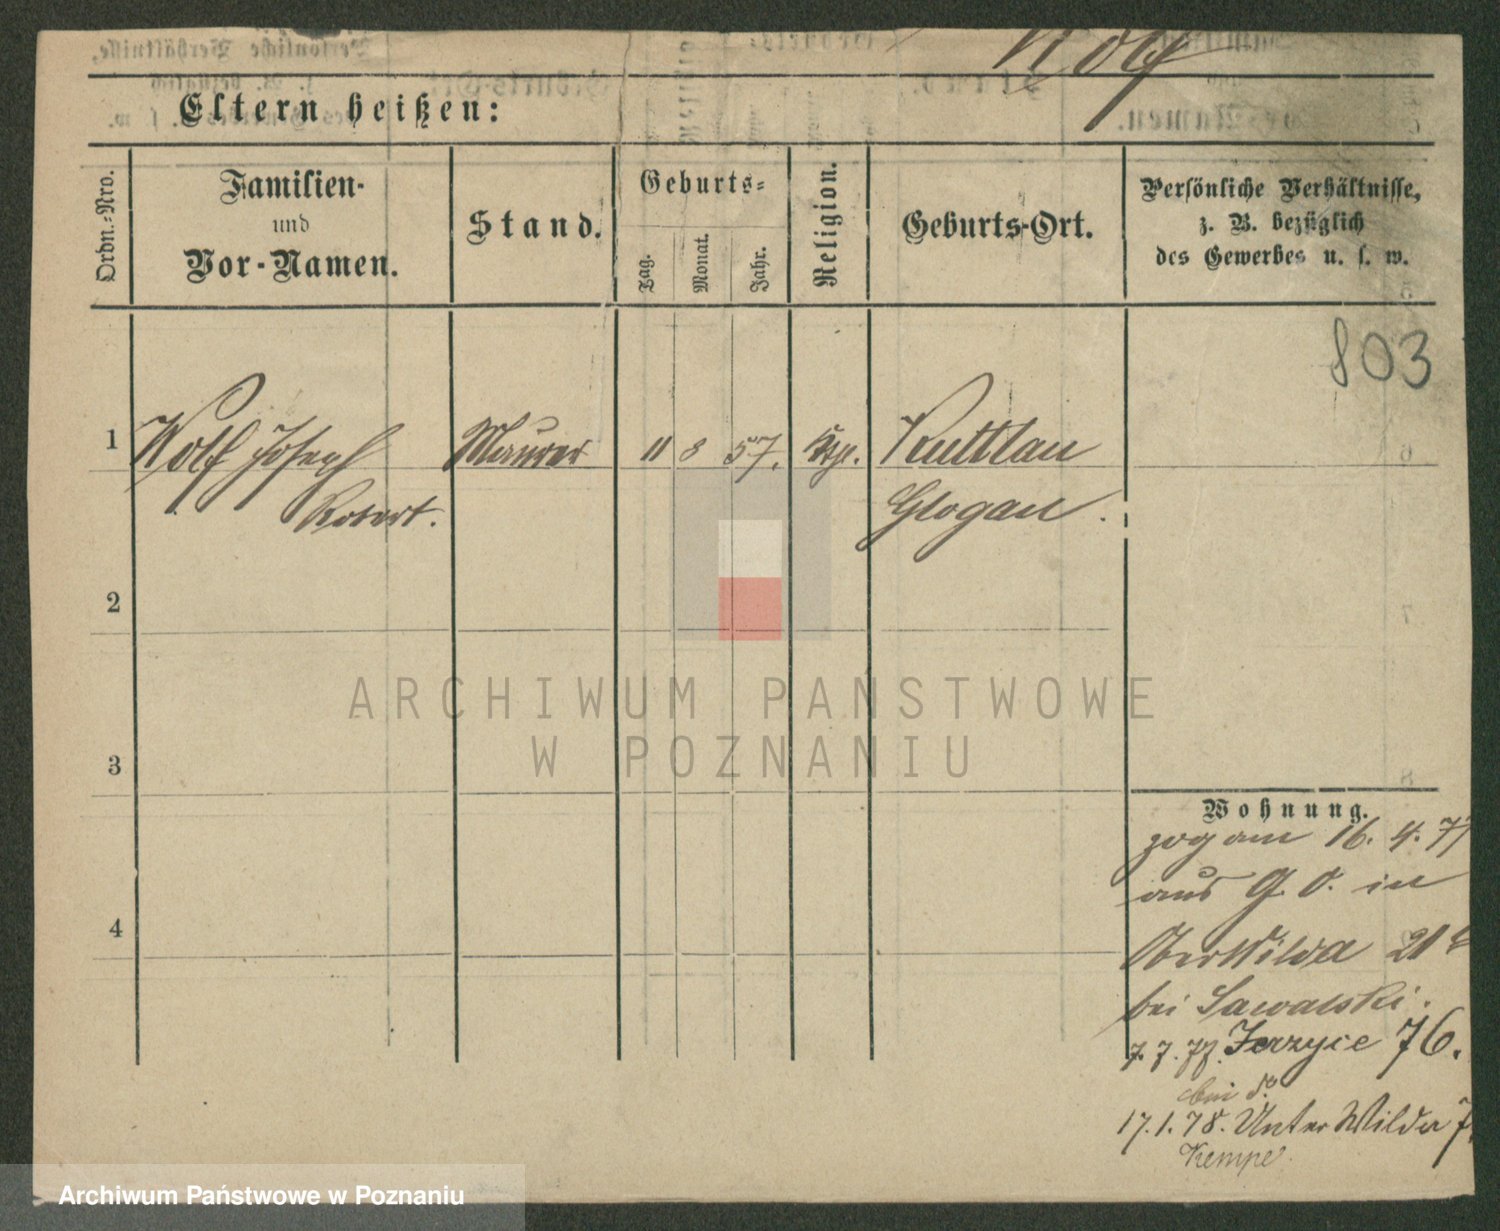 Wolf
Eltern heißen:
Ordn.-Nro.
Familien-
und
Vor-Namen.
Stand.
Geburts-
Tag.
Monat.
Jahr.
Religion.
Geburts-Ort.
Persönliche Verhältnisse,
z. B. bezüglich
des Gewerbes u. s. w.
803
1 Wolf Joseph Maurer 11 8 57. Kuttlau
Robert. Glogau.
2
3
4
Wohnung.
zog am 16. 4. 77
aus G. O. in
Ober Wilda 21
bei Sawalski.
7. 7. 77. Jerzyce 76.
bei
17. 1. 78. Unter Wilda 7
Kempe.
ARCHIWUM PAŃSTWOWE
W POZNANIU
Archiwum Państwowe w Poznaniu